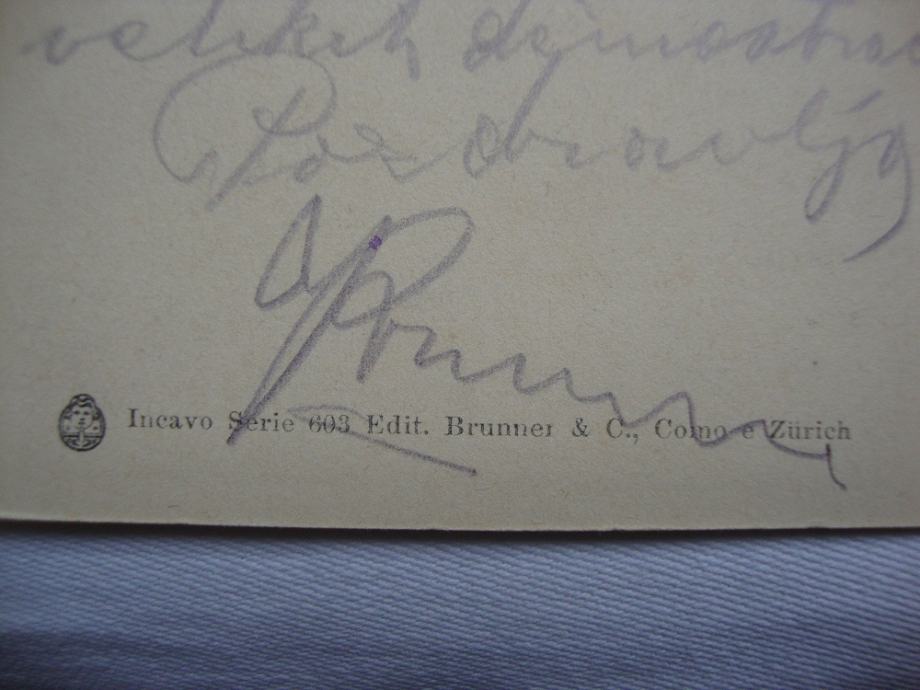 velikih
Pozdravlja
Incavo Serie 603 Edit. Brunner & C., Como e Zürich